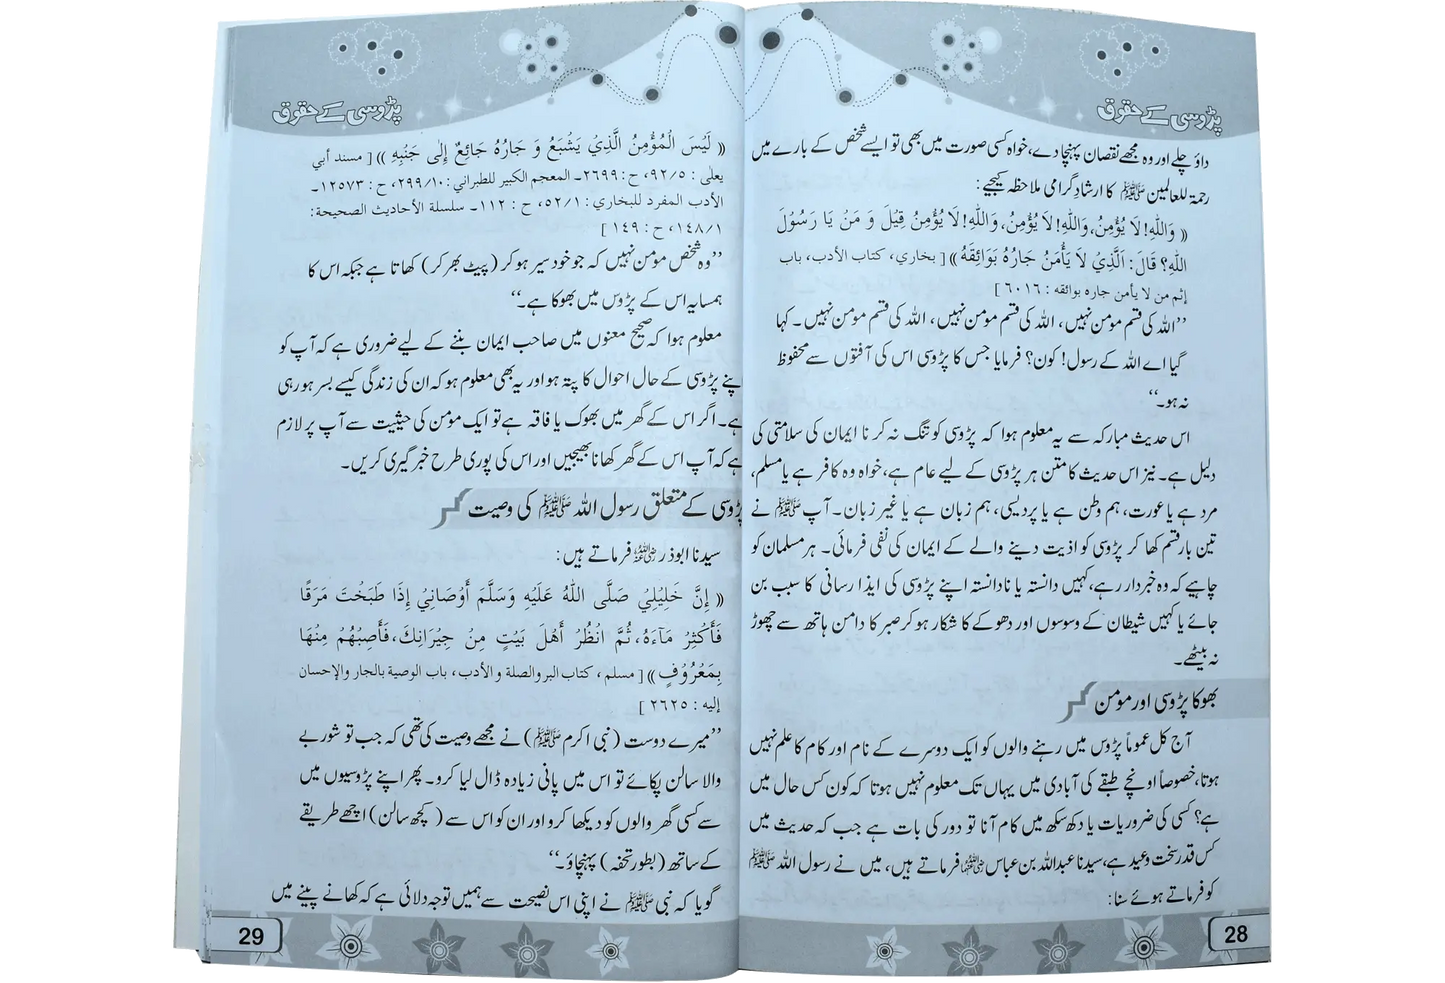 پڑوسی کے حقوق
داؤ چلے اور وہ مجھے نقصان پہنچا دے، خواہ کسی صورت میں بھی تو ایسے شخص کے بارے میں
رحمۃ للعالمین ﷺ کا ارشادِ گرامی ملاحظہ کیجیے:
(( وَاللّٰهِ! لَا يُؤْمِنُ، وَاللّٰهِ! لَا يُؤْمِنُ، وَاللّٰهِ! لَا يُؤْمِنُ قِيْلَ وَ مَنْ يَا رَسُوْلَ
اللّٰهِ؟ قَالَ: اَلَّذِيْ لَا يَأْمَنُ جَارُهُ بَوَائِقَهُ )) [ بخاري، كتاب الأدب، باب
إثم من لا يأمن جاره بوائقه : ٦٠١٦ ]
’’اللہ کی قسم مومن نہیں، اللہ کی قسم مومن نہیں، اللہ کی قسم مومن نہیں۔ کہا
گیا اے اللہ کے رسول! کون؟ فرمایا جس کا پڑوسی اس کی آفتوں سے محفوظ
نہ ہو۔‘‘
اس حدیث مبارکہ سے یہ معلوم ہوا کہ پڑوسی کو تنگ نہ کرنا ایمان کی سلامتی کی
دلیل ہے۔ نیز اس حدیث کا متن ہر پڑوسی کے لیے عام ہے، خواہ وہ کافر ہے یا مسلم،
مرد ہے یا عورت، ہم وطن ہے یا پردیسی، ہم زبان ہے یا غیر زبان۔ آپ ﷺ نے
تین بار قسم کھا کر پڑوسی کو اذیت دینے والے کے ایمان کی نفی فرمائی۔ ہر مسلمان کو
چاہیے کہ وہ خبردار رہے، کہیں دانستہ یا نادانستہ اپنے پڑوسی کی ایذا رسانی کا سبب بن
جائے یا کہیں شیطان کے وسوسوں اور دھوکے کا شکار ہو کر صبر کا دامن ہاتھ سے چھوڑ
نہ بیٹھے۔
بھوکا پڑوسی اور مومن
آج کل عموماً پڑوس میں رہنے والوں کو ایک دوسرے کے نام اور کام کا علم نہیں
ہوتا، خصوصاً اونچے طبقے کی آبادی میں یہاں تک معلوم نہیں ہوتا کہ کون کس حال میں
ہے؟ کسی کی ضروریات یا دکھ سکھ میں کام آنا تو دور کی بات ہے جب کہ حدیث میں
کس قدر سخت وعید ہے، سیدنا عبداللہ بن عباس رضی اللہ عنہما فرماتے ہیں، میں نے رسول اللہ ﷺ
کو فرماتے ہوئے سنا:
28
پڑوسی کے حقوق
(( لَيْسَ الْمُؤْمِنُ الَّذِيْ يَشْبَعُ وَ جَارُهُ جَائِعٌ إِلٰى جَنْبِهِ )) [ مسند أبي
يعلٰى : ٩٢/٥، ح : ٢٦٩٩۔ المعجم الكبير للطبراني : ٢٩٩/١٠، ح : ١٢٥٧٣۔
الأدب المفرد للبخاري : ٥٢/١، ح : ١١٢۔ سلسلة الأحاديث الصحيحة:
١٤٨/١، ح : ١٤٩ ]
’’وہ شخص مومن نہیں کہ جو خود سیر ہو کر (پیٹ بھر کر) کھاتا ہے جبکہ اس کا
ہمسایہ اس کے پڑوس میں بھوکا ہے۔‘‘
معلوم ہوا کہ صحیح معنوں میں صاحب ایمان بننے کے لیے ضروری ہے کہ آپ کو
اپنے پڑوسی کے حال احوال کا پتہ ہو اور یہ بھی معلوم ہو کہ ان کی زندگی کیسے بسر ہو رہی
ہے۔ اگر اس کے گھر میں بھوک یا فاقہ ہے تو ایک مومن کی حیثیت سے آپ پر لازم
ہے کہ آپ اس کے گھر کھانا بھیجیں اور اس کی پوری طرح خبر گیری کریں۔
پڑوسی کے متعلق رسول اللہ ﷺ کی وصیت
سیدنا ابوذر رضی اللہ عنہ فرماتے ہیں:
(( إِنَّ خَلِيْلِيْ صَلَّى اللّٰهُ عَلَيْهِ وَسَلَّمَ أَوْصَانِيْ إِذَا طَبَخْتَ مَرَقًا
فَأَكْثِرْ مَآءَهُ، ثُمَّ انْظُرْ أَهْلَ بَيْتٍ مِنْ جِيْرَانِكَ، فَأَصِبْهُمْ مِنْهَا
بِمَعْرُوْفٍ )) [ مسلم، كتاب البر والصلة و الأدب، باب الوصية بالجار والإحسان
إليه : ٢٦٢٥ ]
’’میرے دوست (نبی اکرم ﷺ) نے مجھے وصیت کی تھی کہ جب تو شوربے
والا سالن پکائے تو اس میں پانی زیادہ ڈال لیا کرو۔ پھر اپنے پڑوسیوں میں
سے کسی گھر والوں کو دیکھا کرو اور ان کو اس سے (کچھ سالن) اچھے طریقے
کے ساتھ (بطور تحفہ) پہنچاؤ۔‘‘
گویا کہ نبی ﷺ نے اپنی اس نصیحت سے ہمیں توجہ دلائی ہے کہ کھانے پینے میں
29